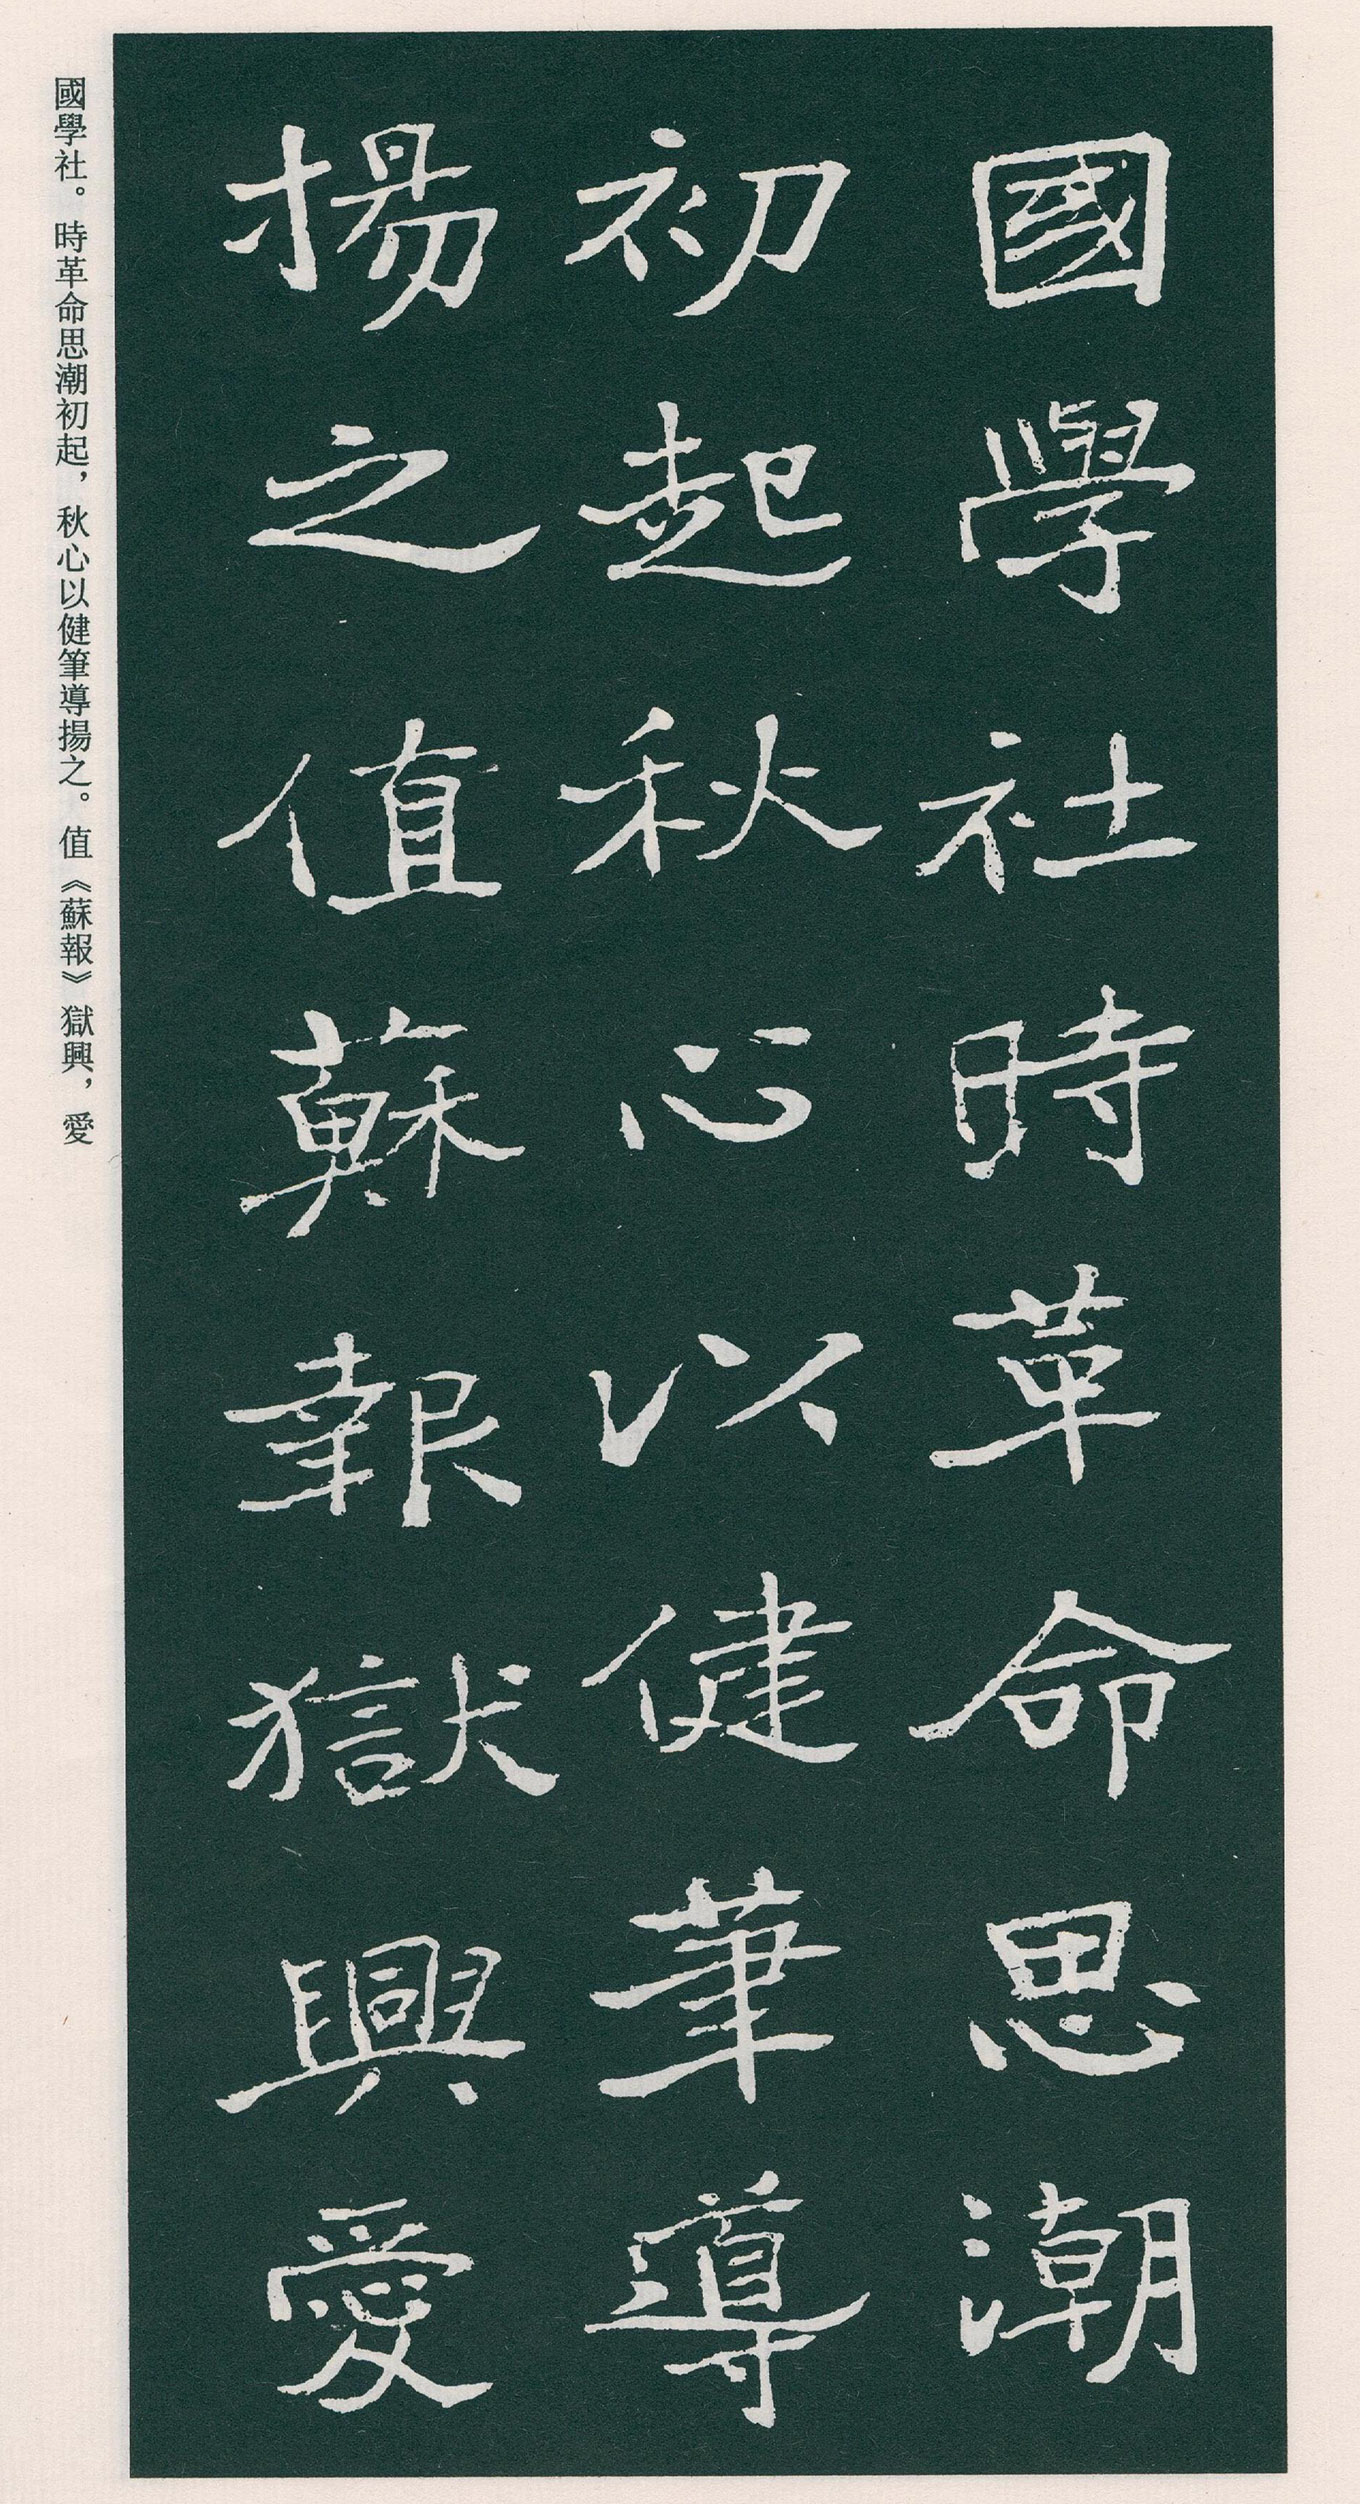 國學社時革命思潮
初起秋心以健筆導
揚之值蘇報獄興愛
國學社。時革命思潮初起，秋心以健筆導揚之。值《蘇報》獄興，愛